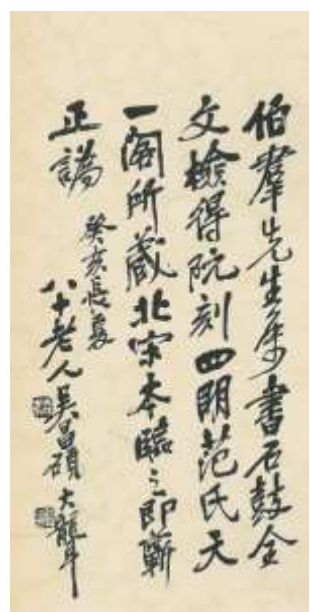 伯羣先生属書石鼓全
文檢得阮刻四明范氏天
一閣所藏北宋本臨之即蘄
正譌
癸亥長夏
八十老人吳昌碩大聾